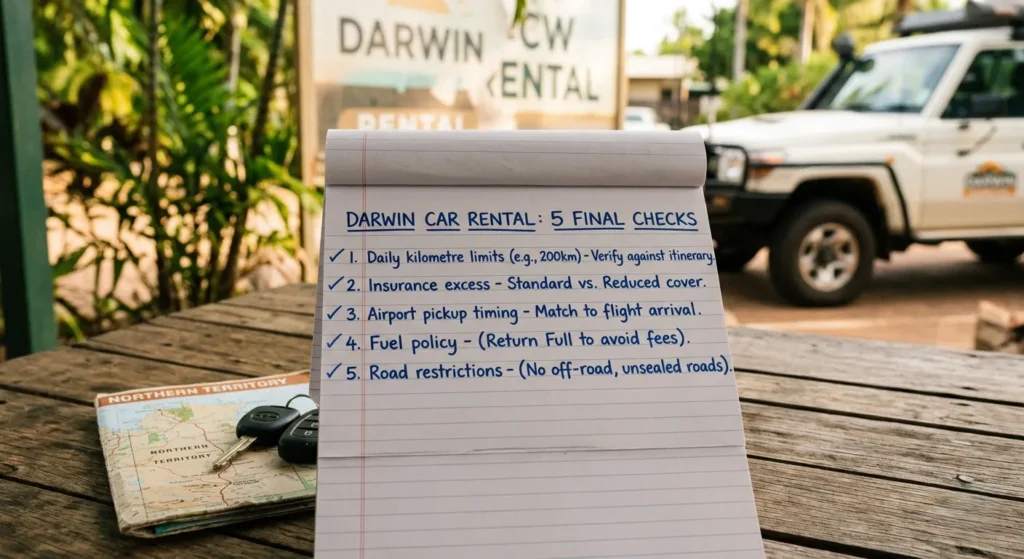 DARWIN
CW
RENTAL
RENTAL
DARWIN
DARWIN CAR RENTAL: 5 FINAL CHECKS
✓ 1. Daily kilometre limits (e.g., 200km) - Verify against itinerary.
✓ 2. Insurance excess - Standard vs. Reduced cover.
✓ 3. Airport pickup timing - Match to flight arrival.
✓ 4. Fuel policy - (Return Full to avoid fees).
✓ 5. Road restrictions - (No off-road, unsealed roads).
NORTHERN TERRITORY
NORTHERN
TERRITORY